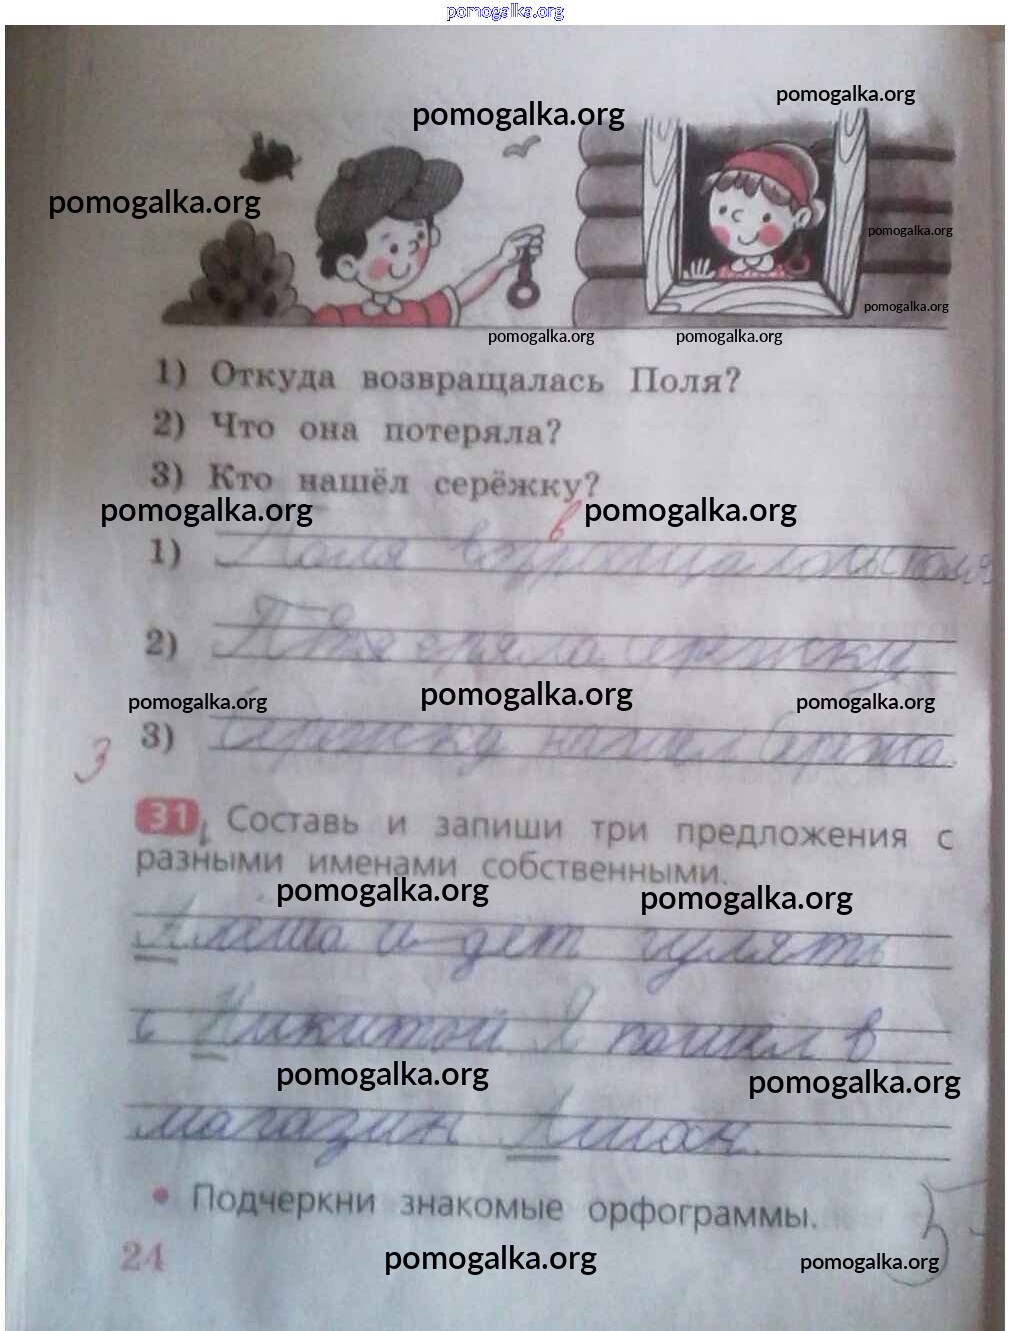 pomogalka.org
pomogalka.org
pomogalka.org
pomogalka.org
pomogalka.org
pomogalka.org
pomogalka.org pomogalka.org
1) Откуда возвращалась Поля?
2) Что она потеряла?
3) Кто нашёл серёжку?
pomogalka.org pomogalka.org
в
1) Поля
2)
pomogalka.org pomogalka.org pomogalka.org
3) нашел Серёжа.
3
31 Составь и запиши три предложения с
разными именами собственными.
pomogalka.org pomogalka.org
Алеша идет гулять
с Никитой Я пошел в
pomogalka.org pomogalka.org
магазин Ашан.
• Подчеркни знакомые орфограммы.
5-
24 pomogalka.org pomogalka.org